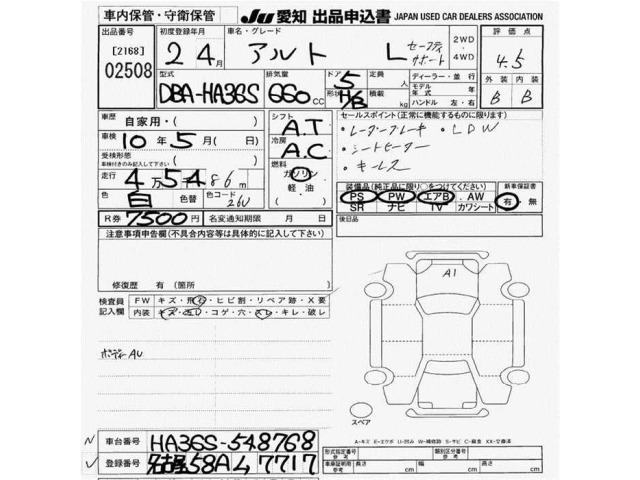 車内保管・守衛保管 JU 愛知 出品申込書 JAPAN USED CAR DEALERS ASSOCIATION
出品番号 初度登録年月 車名・グレード 2WD・4WD 評価点
[2168] 2 4月 アルト L セーフティサポート 4.5
02508
型式 排気量 ドア形状 定員 人 ディーラー・並行 外装 内装
DBA-HA36S 660cc 5 H/B 積載 kg モデル年式 年 B B
ハンドル 左・右
車歴 自家用・( ) シフト A.T セールスポイント(正常に機能するものに限り)
車検 10年5月(日) 冷房 A.C ・レーダーブレーキ ・LDW
受検形態 車検付きのみ記入して下さい ( ) 燃料 ・シートヒーター
走行 4万5486m ガソリン ・キーレス
色 白 色替 色コード 26U 軽油 ( )
装備品(純正品に限り○をつけてください) 新車保証書
PS PW エアB AW 有・無
SR ナビ TV カワシート
R券 7500円 名変通知期限 月 日 後日品
注意事項申告欄(不具合内容等は具体的に記入して下さい)
修復歴 有(箇所
検査員記入欄 FW キズ・飛石・ヒビ割・リペア跡・X要
内装 キズ・汚レ・コゲ・穴・スレ・キレ・破レ
A1
ボディAU
スペア
A-キズ E-エクボ U-凹み W-補修跡 S-サビ C-腐食 XX-交換済
N 車台番号 HA36S-548768 形式指定番号 参考 類別区分番号 参考
✓ 登録番号 名古屋58Aム7717 車車証明用参考 長さ cm 幅 cm 高さ cm